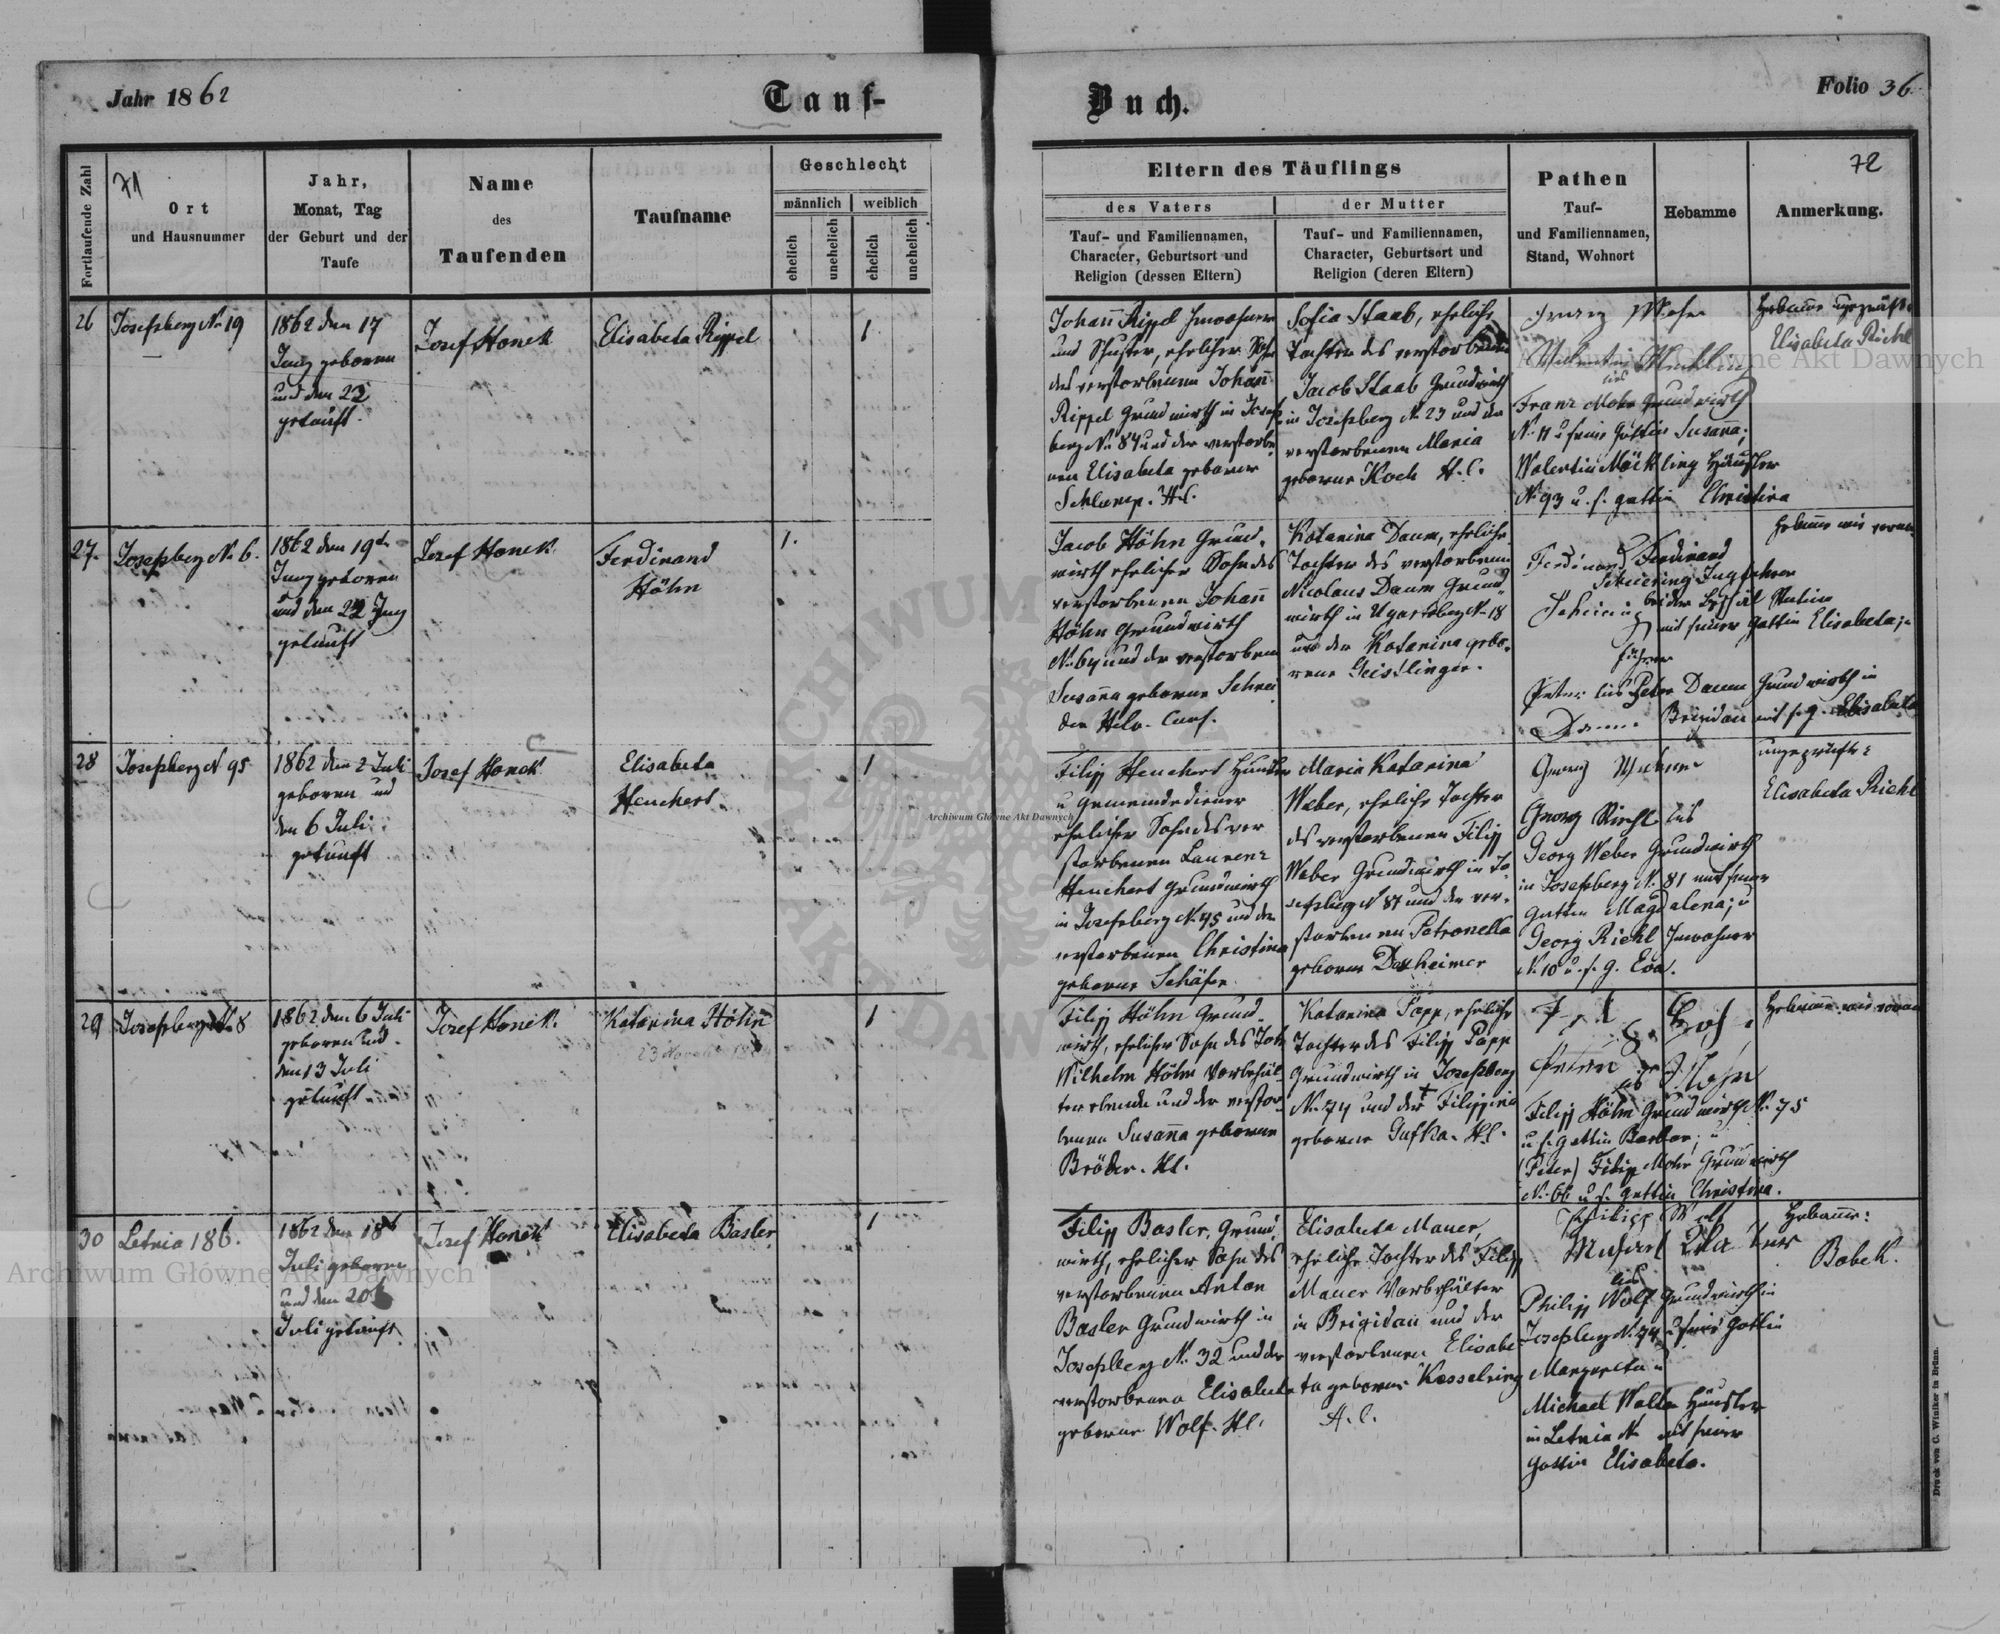 Jahr 1862
Tauf-
Buch.
Folio 36.
71
72
Fortlaufende Zahl
Ort
und Hausnummer
Jahr,
Monat, Tag
der Geburt und der
Taufe
Name
des
Taufenden
Taufname
Geschlecht
männlich
weiblich
ehelich
unehelich
ehelich
unehelich
Eltern des Täuflings
des Vaters
Tauf- und Familiennamen,
Character, Geburtsort und
Religion (dessen Eltern)
der Mutter
Tauf- und Familiennamen,
Character, Geburtsort und
Religion (deren Eltern)
Pathen
Tauf-
und Familiennamen,
Stand, Wohnort
Hebamme
Anmerkung.
26
Josefsberg No 19
1862 den 17
Juny geboren
und den 22
getauft.
Josef Honek
Elisabeta Rippel
1
Johann Rippel Inwohner
und Schuster, ehelicher Sohn
des verstorbenen Johann
Rippel Grundwirth in Josefs-
berg No 84 und der verstorbe-
nen Elisabeta geborne
Schlamp. H.C.
Sofia Staab, eheliche
Tochter des verstorbenen
Jacob Staab Grundwirth
in Josefsberg No 23 und der
verstorbenen Maria
geborne Koch H.C.
Franz
Franz Mohr Grundwirth
No 11 u seine Gattin Susanna;
Walentin Möckling Häusler
No 93 u. s. gattin Christina
Hebamme ungeprüfte
Elisabeta Riehl
27.
Josefsberg No 6.
1862 den 19t
Juny geboren
und den 22 Juny
getauft
Josef Honek.
Ferdinand
Höhn
1.
Jacob Höhn Grund-
wirth ehelicher Sohn des
verstorbenen Johann
Höhn Grundwirth
No 64 und der verstorbenen
Susanna geborne Schnei
der Helv. Conf.
Katarina Daum, eheliche
Tochter des verstorbenen
Nicolaus Daum Grund-
wirth in Ugartsberg No 18
und der Katarina gebo-
rene Geislinger.
Ferdinand Ferdinand
mit seiner Gattin Elisabeta;
Peter Daum Grundwirth in
Daum Brigidau mit s. g. Elisabeta
Hebamme wie voran
28
Josefsberg N 95
1862 den 2 Juli
geboren und
den 6 Juli
getauft
Josef Honek
Elisabeta
Henchert
1
Filipp Henchert Häusler
u Gemeindediener
ehelicher Sohn des ver
storbenen Laurenz
Henchert Grundwirth
in Josefsberg No 45 und der
verstorbenen Christina
geborne Schäfer
Maria Katarina
Weber, eheliche Tochter
des verstorbenen Filipp
Weber Grundwirth in Jo
sefsberg N 81 und der ver-
storbenen Petronella
geborne Dexheimer
Georg Weber
Georg Riehl
Georg Weber Grundwirth
in Josefsberg No 81 mit seiner
Gattin Magdalena; u
Georg Riehl Inwohner
No 10 u. s. g. Eva.
ungeprüfte:
Elisabeta Riehl
29
Josefsberg No 8
1862 den 6 Juli
geboren und
den 13 Juli
getauft
Josef Honek.
Katarina Höhn
1
Filipp Höhn Grund-
wirth, ehelicher Sohn des Joh
Wilhelm Höhn Vorbehäl-
ter ebenda und der verstor-
benen Susanna geborne
Bröder. H.C.
Katarina Papp, eheliche
Tochter des Filipp Papp
Grundwirth in Josefsberg
No 74 und der † Filippina
geborne Gufka. H.C.
Filipp Höhn Grundwirth No 75
u. s. gattin Barbar; u
(Peter) Filipp Mohr Grundwirth
No 66 u s. gattin Christina.
Hebamme wie voran
30
Letnia 186.
1862 den 18
Juli geboren
und den 20
Juli getauft.
Josef Honek
Elisabeta Basler
1
Filipp Basler, Grund-
wirth, ehelicher Sohn des
verstorbenen Anton
Basler Grundwirth in
Josefsberg No 32 und der
verstorbenen Elisabeta
geborne Wolf. H.C.
Elisabeta Mauer,
eheliche Tochter des Filipp
Mauer Vorbehälter
in Brigidau und der
verstorbenen Elisabe-
ta geborne Kesselring
H.C.
Philipp Wolf
Philipp Wolf Grundwirth in
Josefsberg No 74 u seine Gattin
Margareta u
Michael Walter Häusler
in Letnia No mit seiner
Gattin Elisabeta.
Hebamme:
Bobek.
Druck von C. Winiker in Brünn.
Archiwum Główne Akt Dawnych
Archiwum Główne Akt Dawnych
Archiwum Główne Akt Dawnych
ARCHIWUM
AKT DAWNYCH